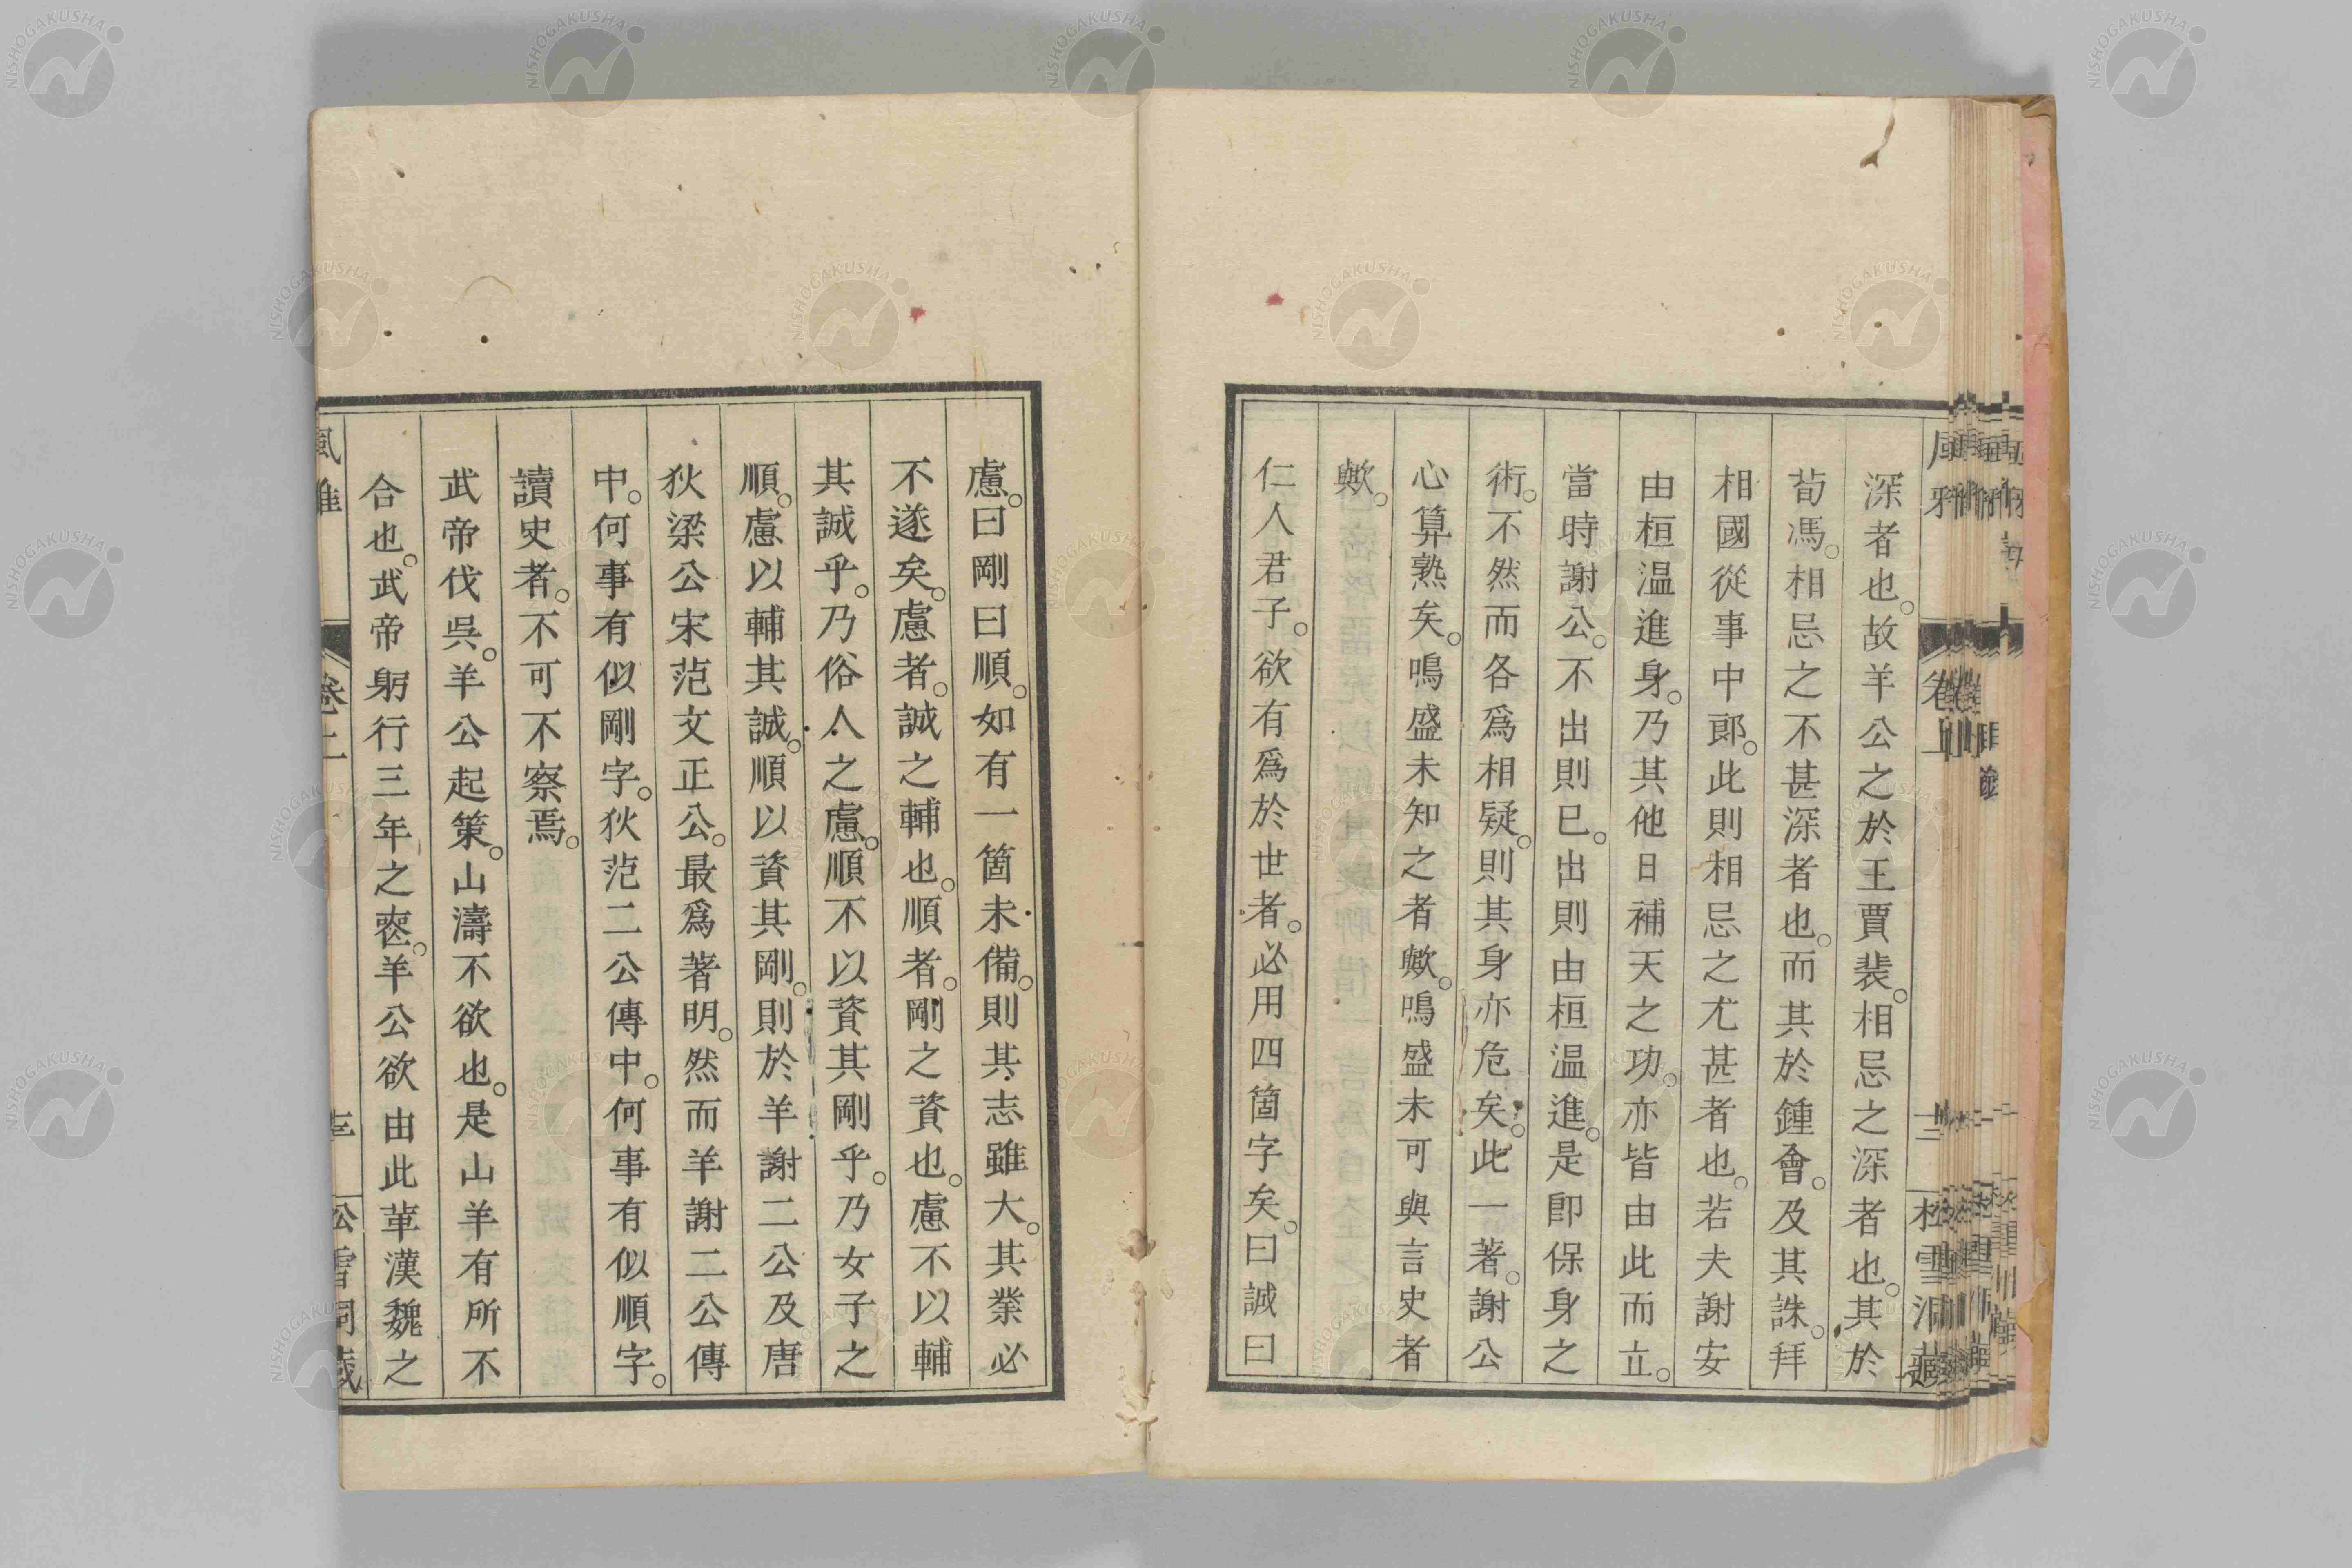 深者也。故羊公之於王賈裴。相忌之深者也。其於
荀馮。相忌之不甚深者也。而其於鍾會。及其誅。拜
相國從事中郎。此則相忌之尤甚者也。若夫謝安
由桓温進身。乃其他日補天之功。亦皆由此而立。
當時謝公。不出則已。出則由桓温進。是即保身之
術。不然而各爲相疑。則其身亦危矣。此一著。謝公
心算熟矣。鳴盛未知之者歟。鳴盛未可與言史者
歟。
仁人君子。欲有爲於世者。必用四箇字矣。曰誠曰
慮。曰剛曰順。如有一箇未備。則其志雖大。其業必
不遂矣。慮者。誠之輔也。順者。剛之資也。慮不以輔
其誠乎。乃俗人之慮。順不以資其剛乎。乃女子之
順。慮以輔其誠。順以資其剛。則於羊謝二公及唐
狄梁公宋范文正公。最爲著明。然而羊謝二公傳
中。何事有似剛字。狄范二公傳中。何事有似順字。
讀史者。不可不察焉。
武帝伐吳。羊公起策。山濤不欲也。是山羊有所不
合也。武帝躬行三年之喪。羊公欲由此革漢魏之
卷二
松雪洞藏
NISHOGAKUSHA